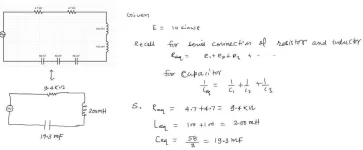 4.7 kΩ
4.7 kΩ
9.4 KΩ
200mH
19.3 mF
Given
E = 10 sinωt
Recall for series connection of resistor and inductor
Req = R1 + R2 + R3 + . . .
for capacitor
1/Ceq = 1/C1 + 1/C2 + 1/C3
S. Req = 4.7+4.7 = 9.4 KΩ
Leq = 100 +100 = 200 mH
Ceq = 58/3 = 19.3 mF